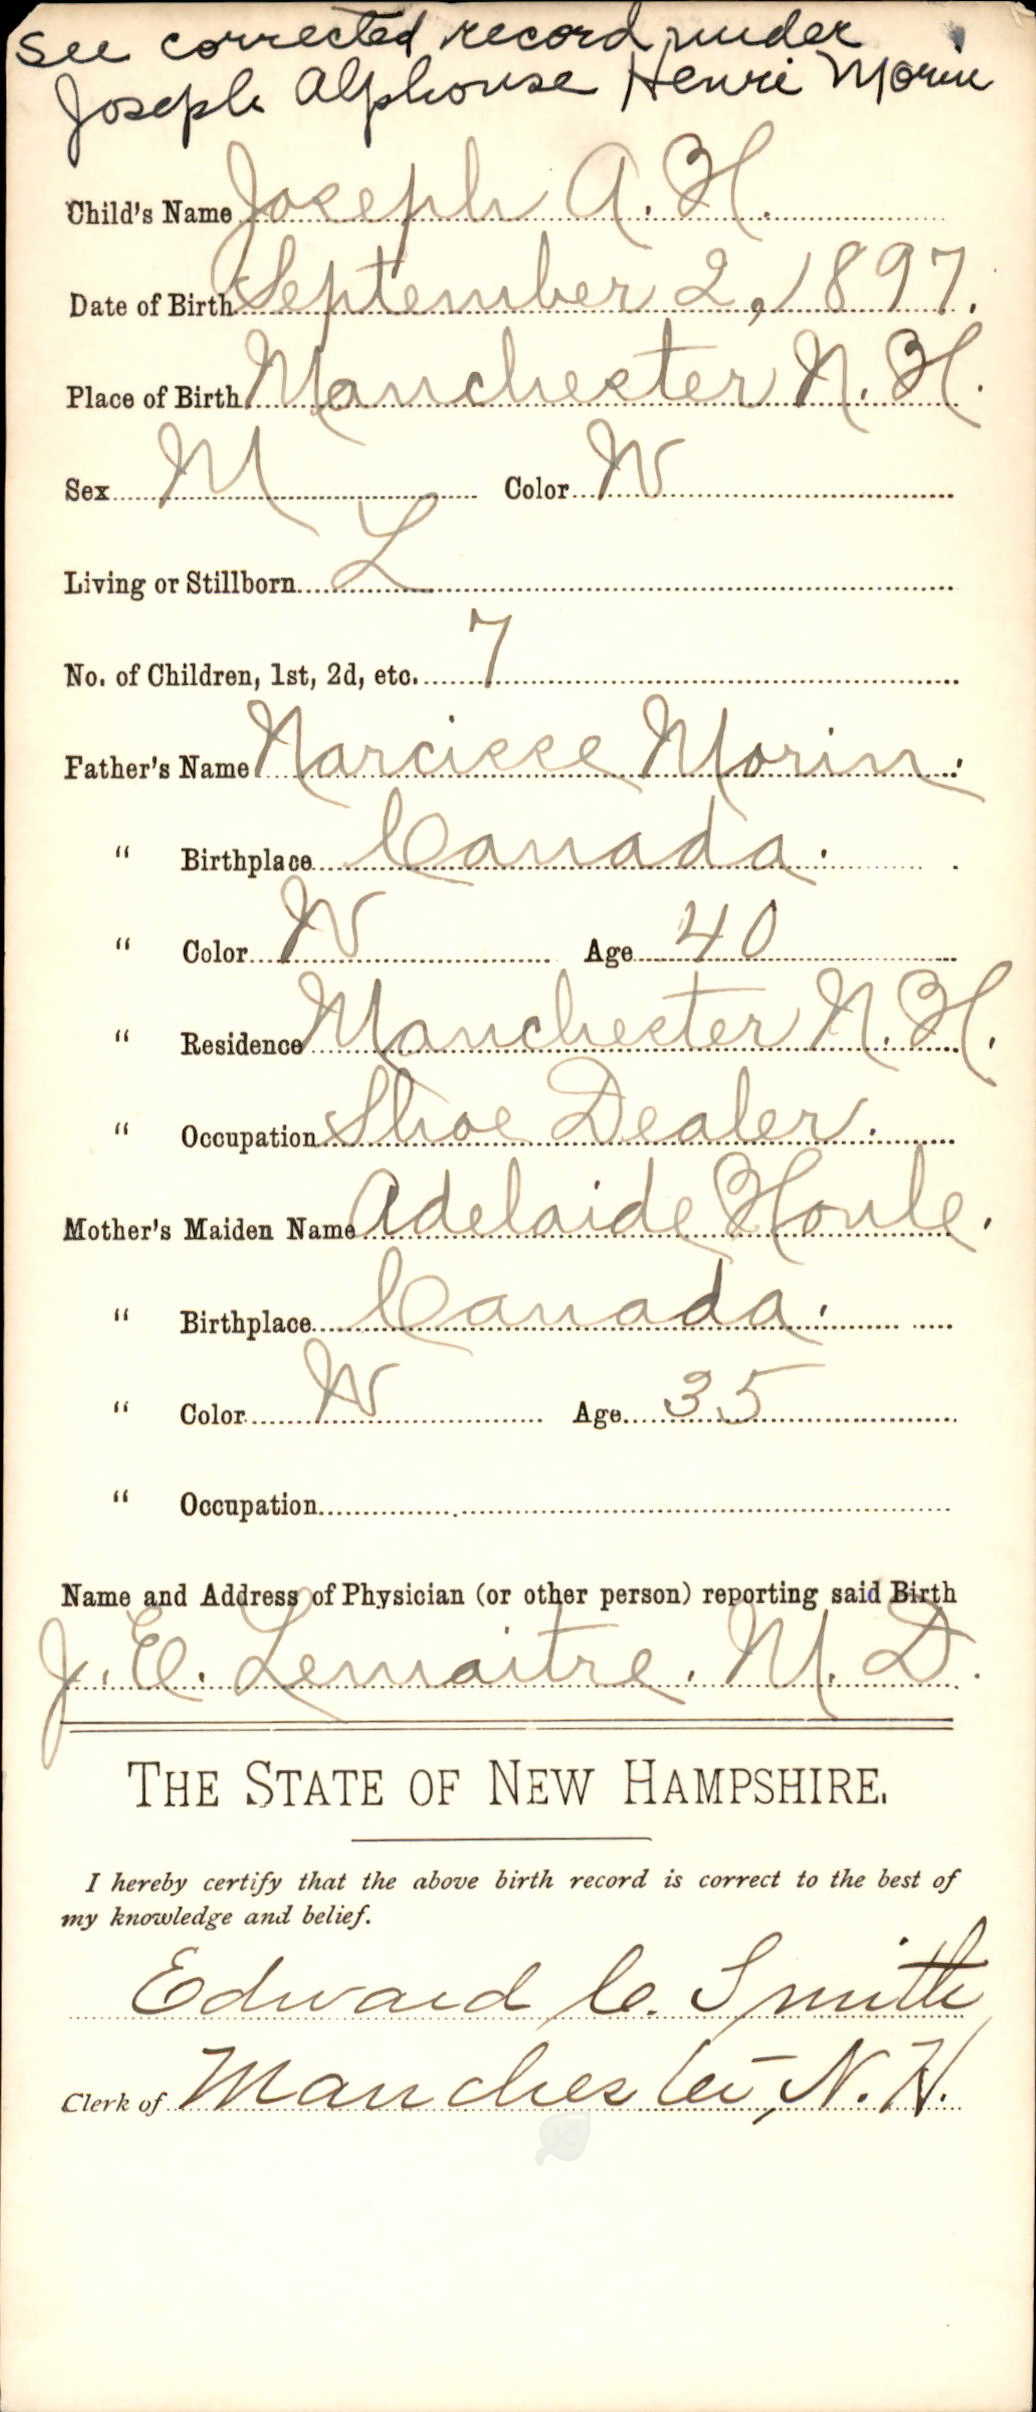 See corrected record under
Joseph Alphonse Henri Morin
Child's Name Joseph A. H.
Date of Birth September 2, 1897.
Place of Birth Manchester N. H.
Sex M Color W
Living or Stillborn L
No. of Children, 1st, 2d, etc. 7
Father's Name Narcisse Morin.
" Birthplace Canada.
" Color W Age 40
" Residence Manchester N. H.
" Occupation Shoe Dealer.
Mother's Maiden Name Adelaide Houle.
" Birthplace Canada.
" Color W Age 35
" Occupation
Name and Address of Physician (or other person) reporting said Birth
J. E. Lemaitre. M. D.
THE STATE OF NEW HAMPSHIRE.
I hereby certify that the above birth record is correct to the best of
my knowledge and belief.
Edward C. Smith
Clerk of Manchester, N. H.